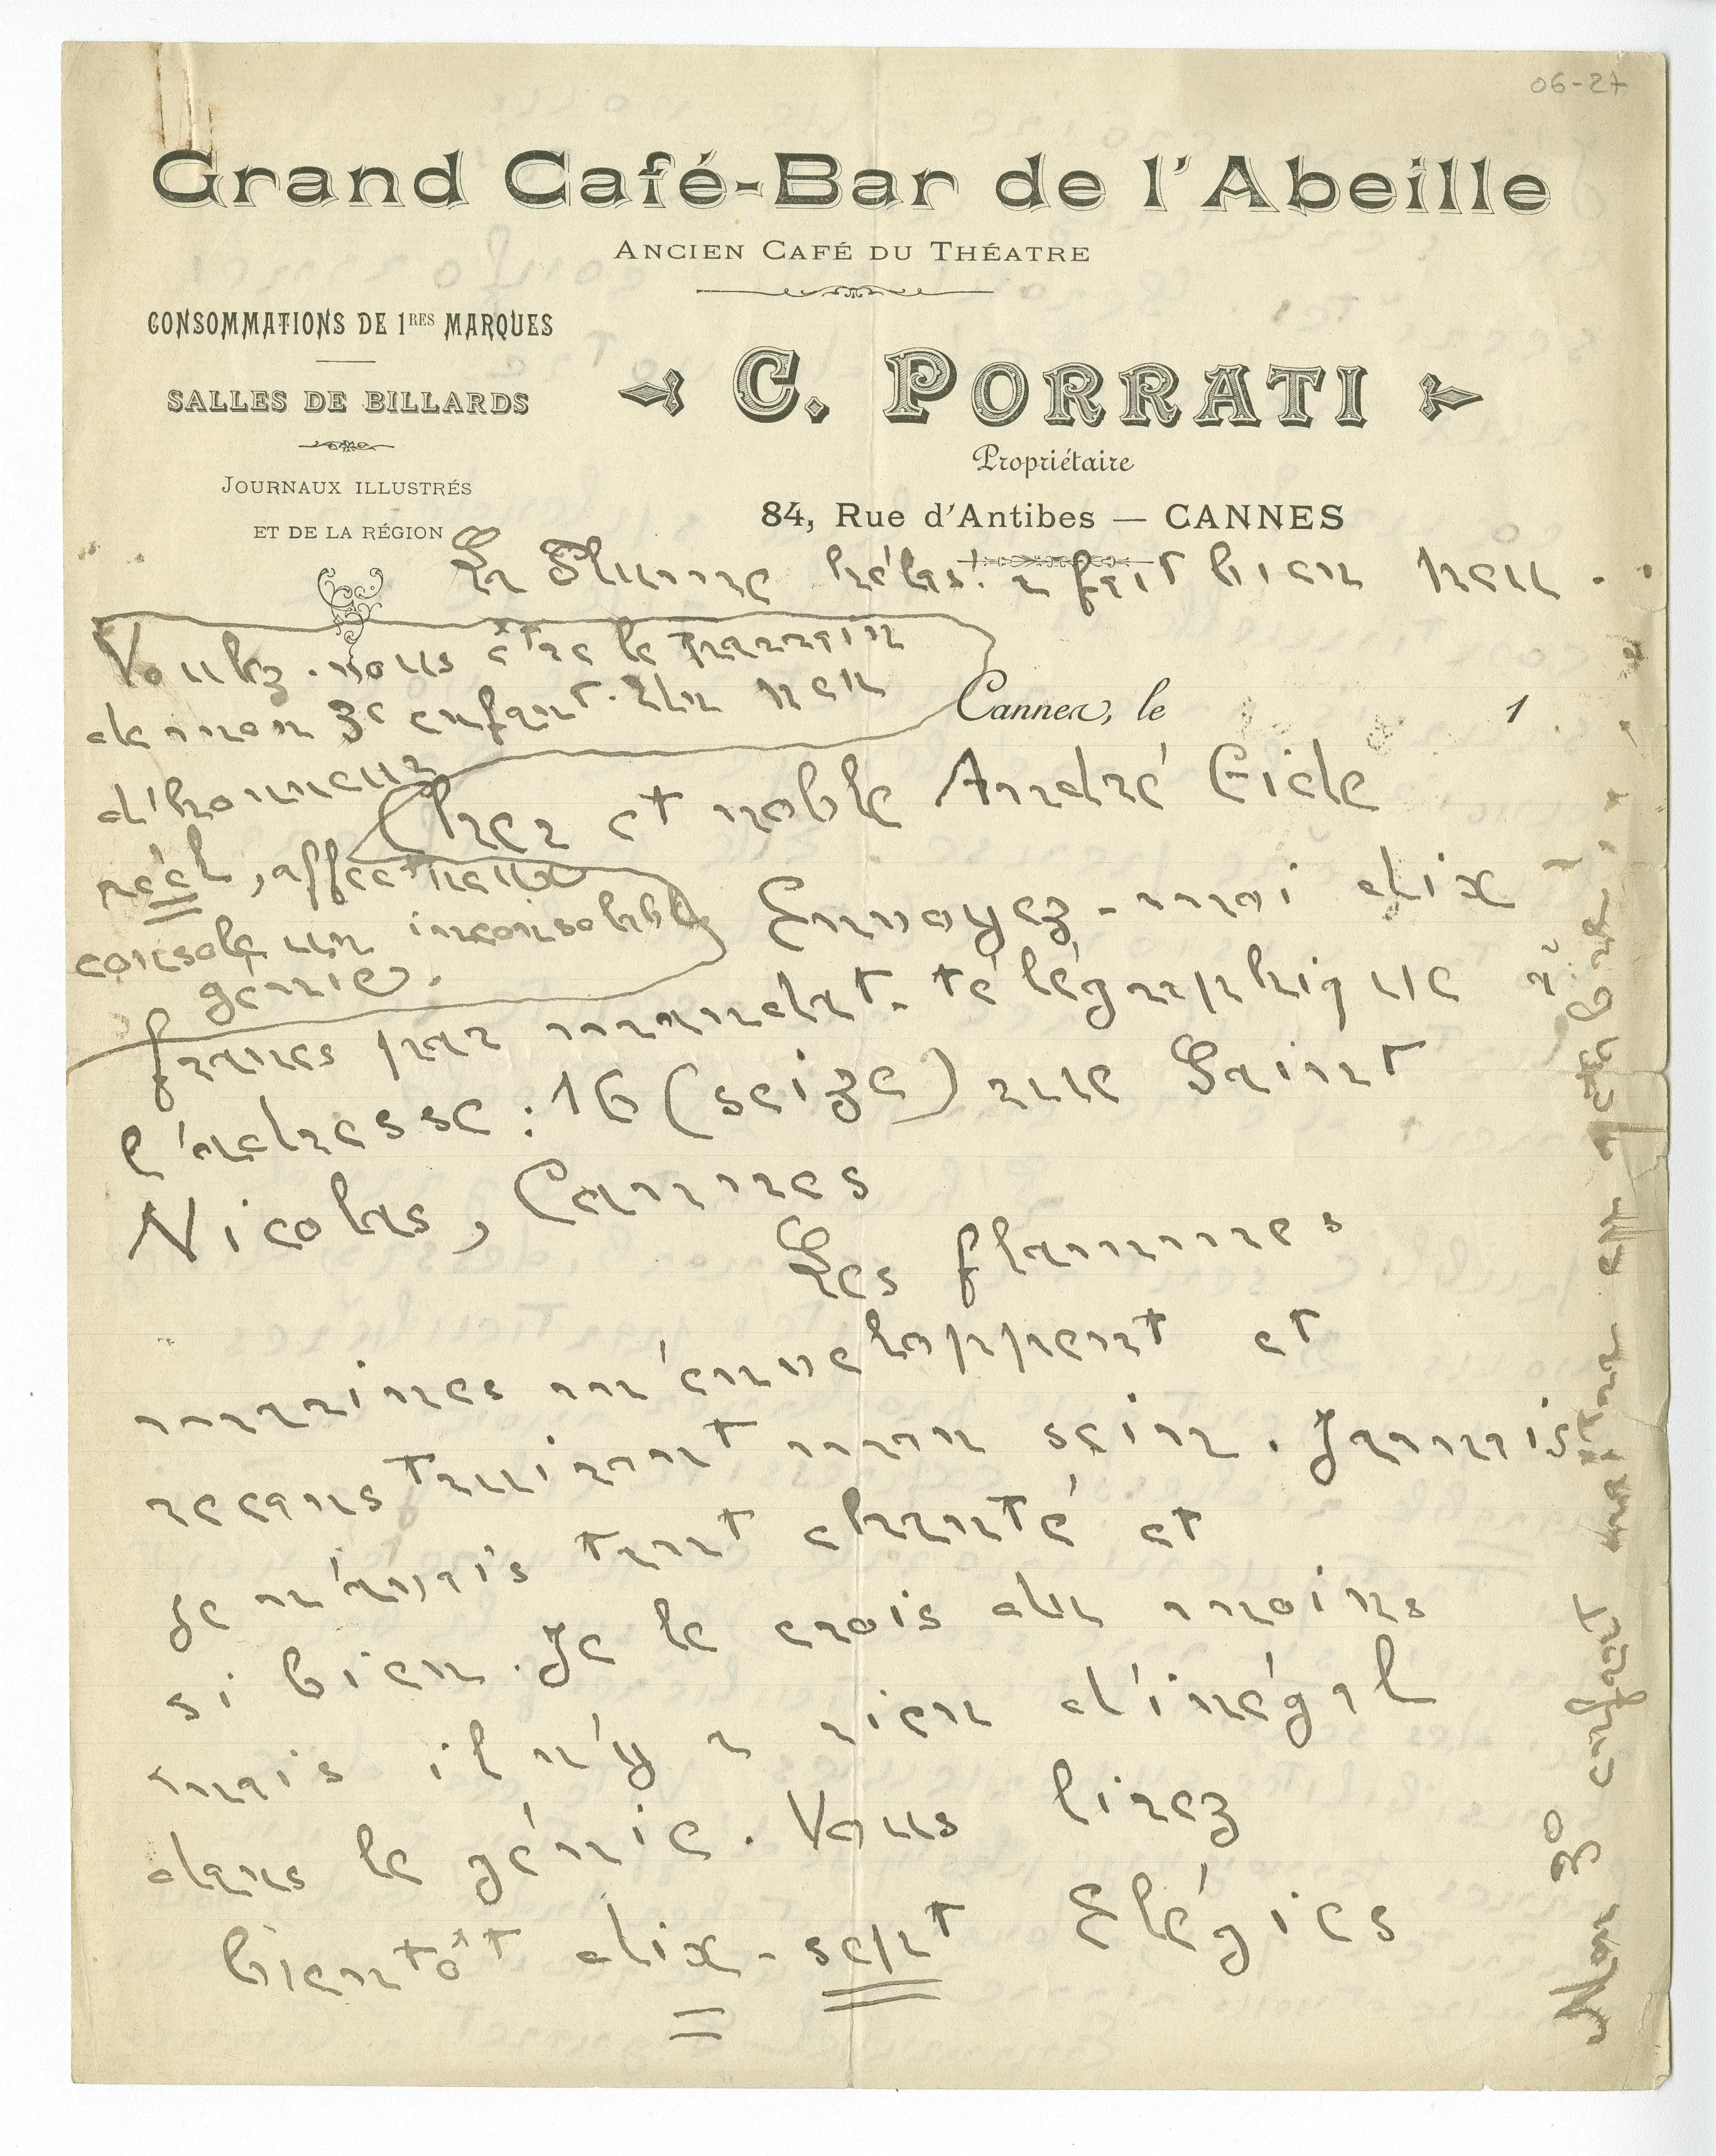 06-27
Grand Café-Bar de l'Abeille
ANCIEN CAFÉ DU THÉATRE
CONSOMMATIONS DE 1RES MARQUES
SALLES DE BILLARDS
JOURNAUX ILLUSTRÉS
ET DE LA RÉGION
C. PORRATI
Propriétaire
84, Rue d'Antibes — CANNES
hélas! a fait bien peu..
Voulez-vous être le parrain
de mon 3e enfant. Un peu
d'honneur
réel, affectueux
console un inconsolable
génie.
Cannes, le 1
Cher et noble André Gide
Envoyez-moi dix
francs par mandat-télégraphique à
l'adresse : 16 (seize) rue Saint
Nicolas, Cannes
Les flammes
marines m'enveloppent et
reconstruisent mon sein. Jamais
je n'avais tant chanté et
si bien. Je le crois du moins
mais il n'y a rien d'inégal
dans le génie. Vous lirez
bientôt dix-sept Elégies
Mon 3e enfant naîtra en